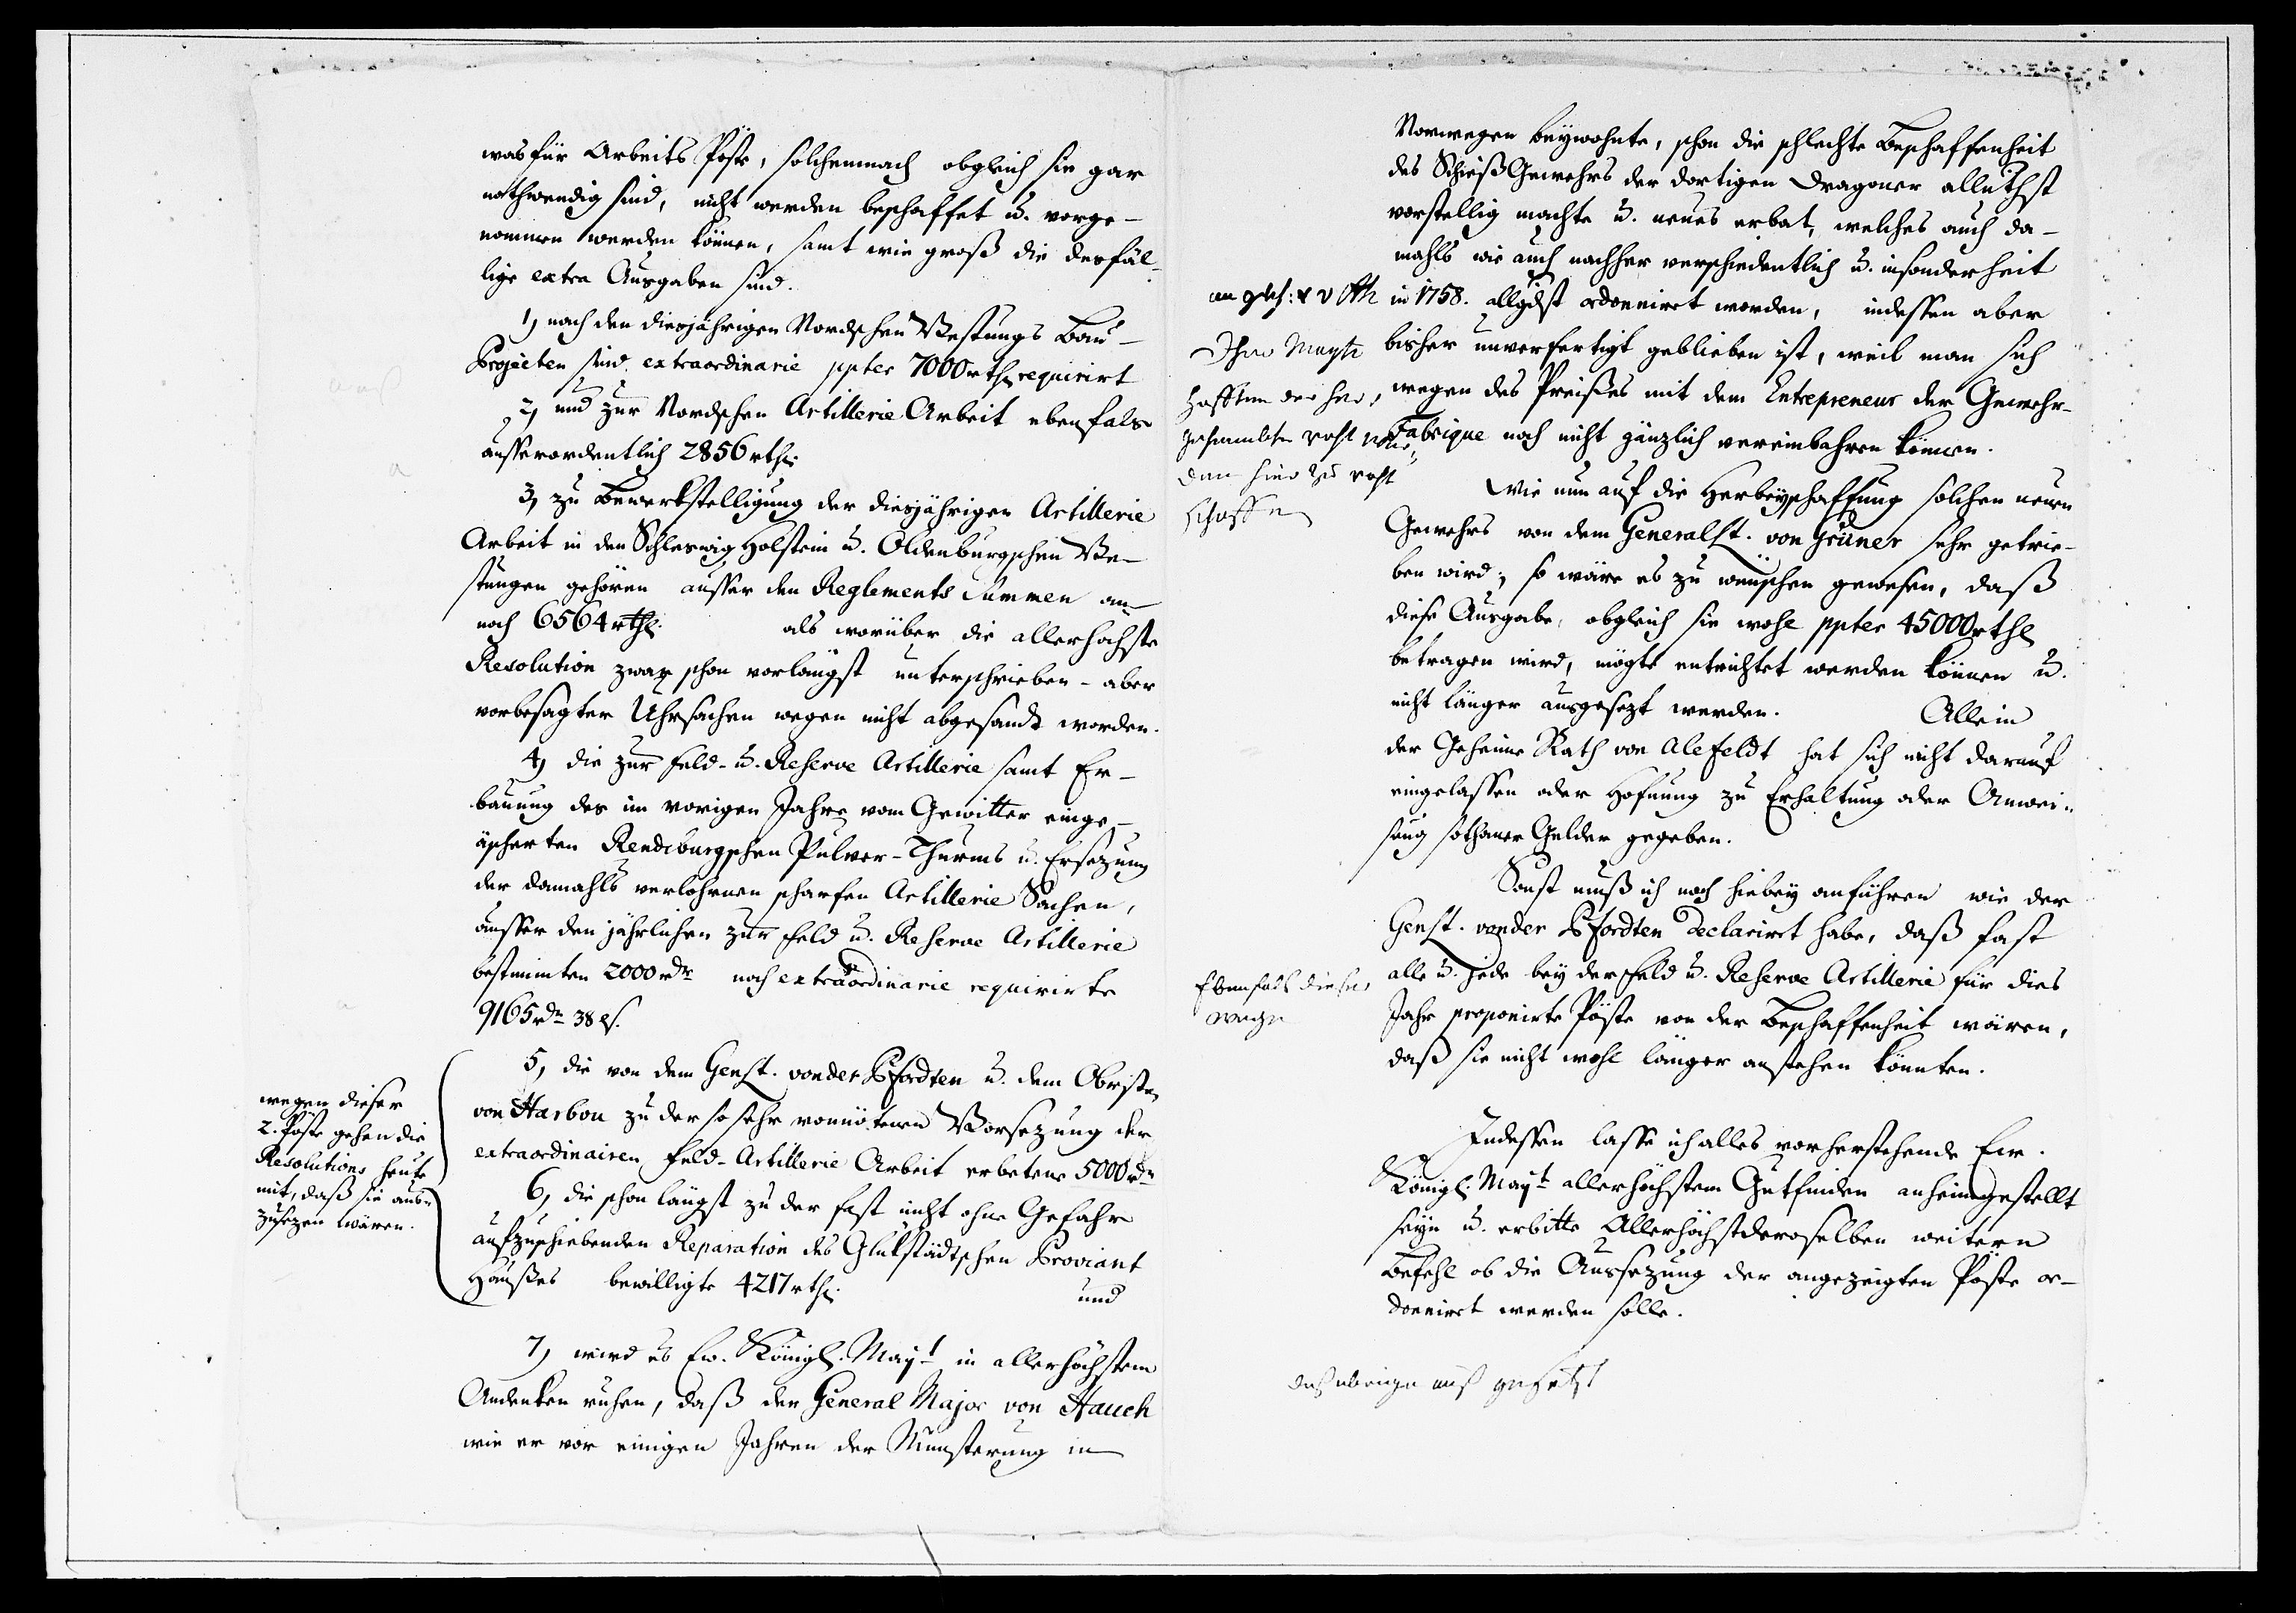 was für Arbeits Pöste, solchemnach obgleich sie gar
nothwendig sind, nicht werden beschaffet u. vorge-
nommen werden können, samt wie groß die desfäl-
lige extra Ausgaben sind.
1, nach den diesjährigen Nordschen Vestungs Bau-
Projecten sind extraordinarie ppter 7000 rthl. requirirt
2, und zur Nordschen Artillerie Arbeit ebenfals
ausserordentlich 2856 rthl.
3, zu Bewerkstelligung der diesjährigen Artillerie
Arbeit in den Schleswig Holstein u. Oldenburgschen Ve-
stungen gehören ausser den Reglements Summen an-
noch 6564 rthl. als worüber die allerhöchste
Resolution zwar schon vorlängst unterschrieben - aber
vorbesagter Uhrsachen wegen nicht abgesandt worden.
4, die zur Feld- u. Reserve Artillerie samt Er-
bauung des im vorigen Jahre vom Gewitter einge-
äscherten Rendsburgschen Pulver-Thurms u. Ersezung
der damahls verlohrnen scharfen Artillerie Sachen,
ausser den jährlichen zur Feld u. Reserve Artillerie
bestimten 2000 rdr noch extraordinarie requirirte
9165 rdr 38 ls.
wegen dieser
2. Pöste gehen die
Resolutions heute
mit, daß sie aus-
zusezen wären.
5, die von dem Genlt. von der Pfordten u. dem Obristen
von Harbou zu der so sehr vonnötenen Vorsezung der
extraordinairen Feld-Artillerie Arbeit erbetene 5000 rdr
6, die schon längst zu der fast nicht ohne Gefahr
aufzuschiebenden Reparation des Glükstädtschen Proviant
Haußes bewilligte 4217 rthl. und
7, wird es Ew. Königl. Mayt. in allerhöchstem
Andenken ruhen, daß der General Major von Hauch
wie er vor einigen Jahren der Munsterung in
Norwegen beywohnte, schon die schlechte Beschaffenheit
des Schieß Gewehrs der dortigen Dragoner allunthst
vorstellig machte u. neues erbat, welches auch da-
mahls wie auch nachher verschiedentlich u. insonderheit
in 1758. allgdst ordonniret worden, indessen aber
bisher unverfertigt geblieben ist, weil man sich
wegen des Preißes mit dem Entrepreneur der Gewehr-
Fabrique noch nicht gänzlich vereinbahren können.
Ihro Maytt
schaffen
Wie nun auf die Herbeyschaffung solchen neuen
Gewehrs von dem Generallt. von Grüner sehr getrie-
ben wird; so wäre es zu wünschen gewesen, daß
diese Ausgabe, obgleich sie wohl ppter 45000 rthl
betragen wird, mögte entrichtet werden können u.
nicht länger ausgesezt werden. Allein
der Geheime Rath von Alefeldt hat sich nicht darauf
eingelassen oder Hofnung zu Erhaltung oder Anwei-
sung sothaner Gelder gegeben.
Sonst muß ich noch hiebey anführen wie der
Genlt. von der Pfordten declariret habe, daß fast
alle u. jede bey der Feld u. Reserve Artillerie für dies
Jahr proponirte Pöste von der Beschaffenheit wären,
daß sie nicht wohl länger anstehen könnten.
Ebenfals dieser
wegen
Indessen lasse ich alles vorherstehende Ew.
Königl. Mayt. allerhöchstem Gutfinden anheimgestellt
seyn u. erbitte Allerhöchstderoselben weitern
Befehl ob die Aussezung der angezeigten Pöste or-
donniret werden solle.
das übrige aus gesetzt